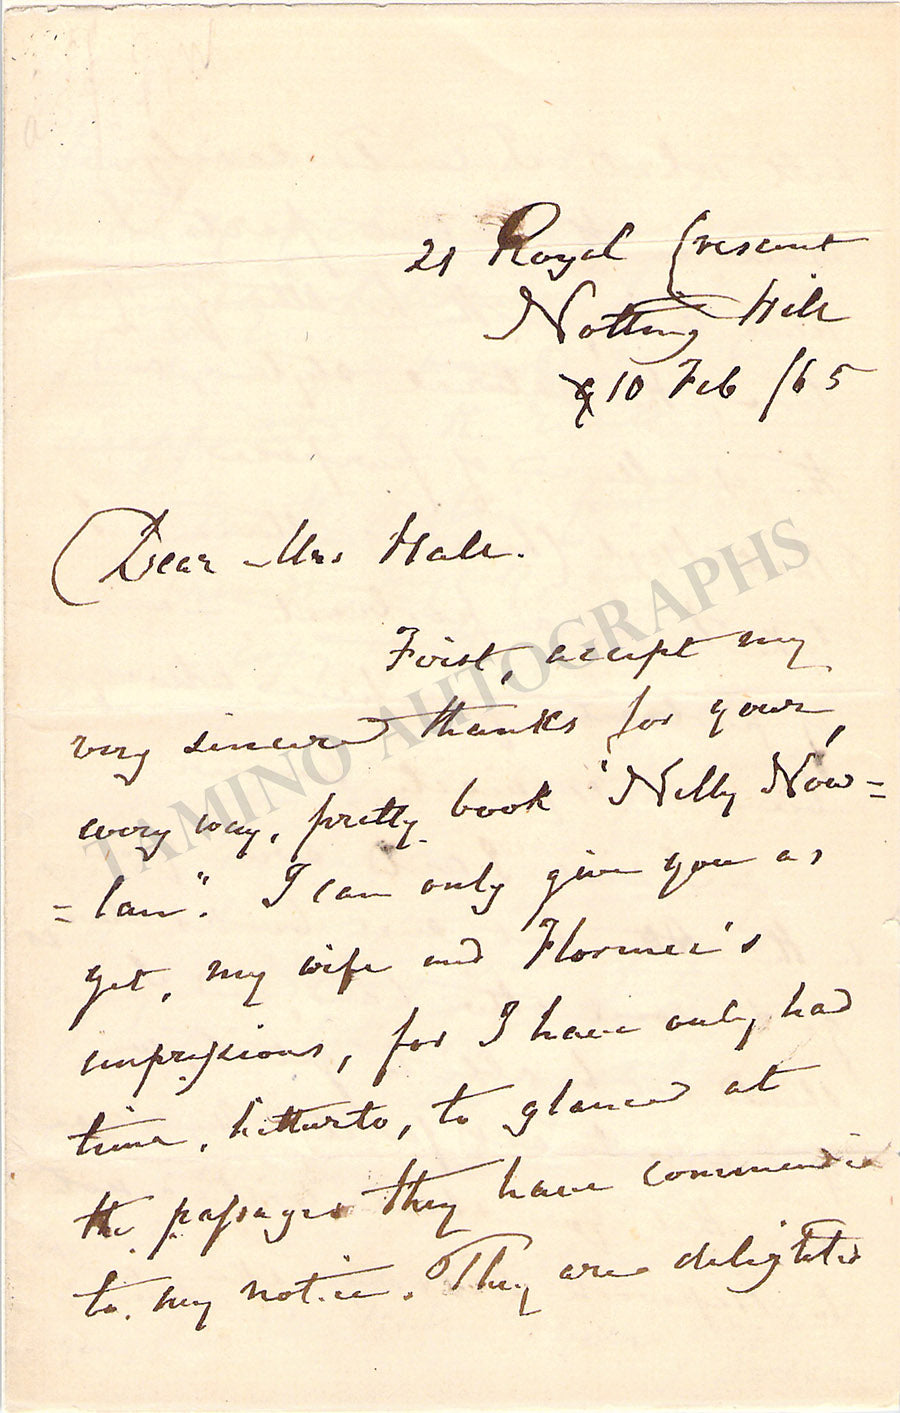 21 Royal Crescent
Notting Hill
10 Feb /65
Dear Mrs Hall.
First, accept my
very sincere thanks for your,
every way, pretty book 'Nelly Now=
=lan". I can only give you as
yet, my wife and Florence's
impressions, for I have only had
time, hitherto, to glance at
the passages they have commended
to my notice. They are delighted
TAMINO AUTOGRAPHS